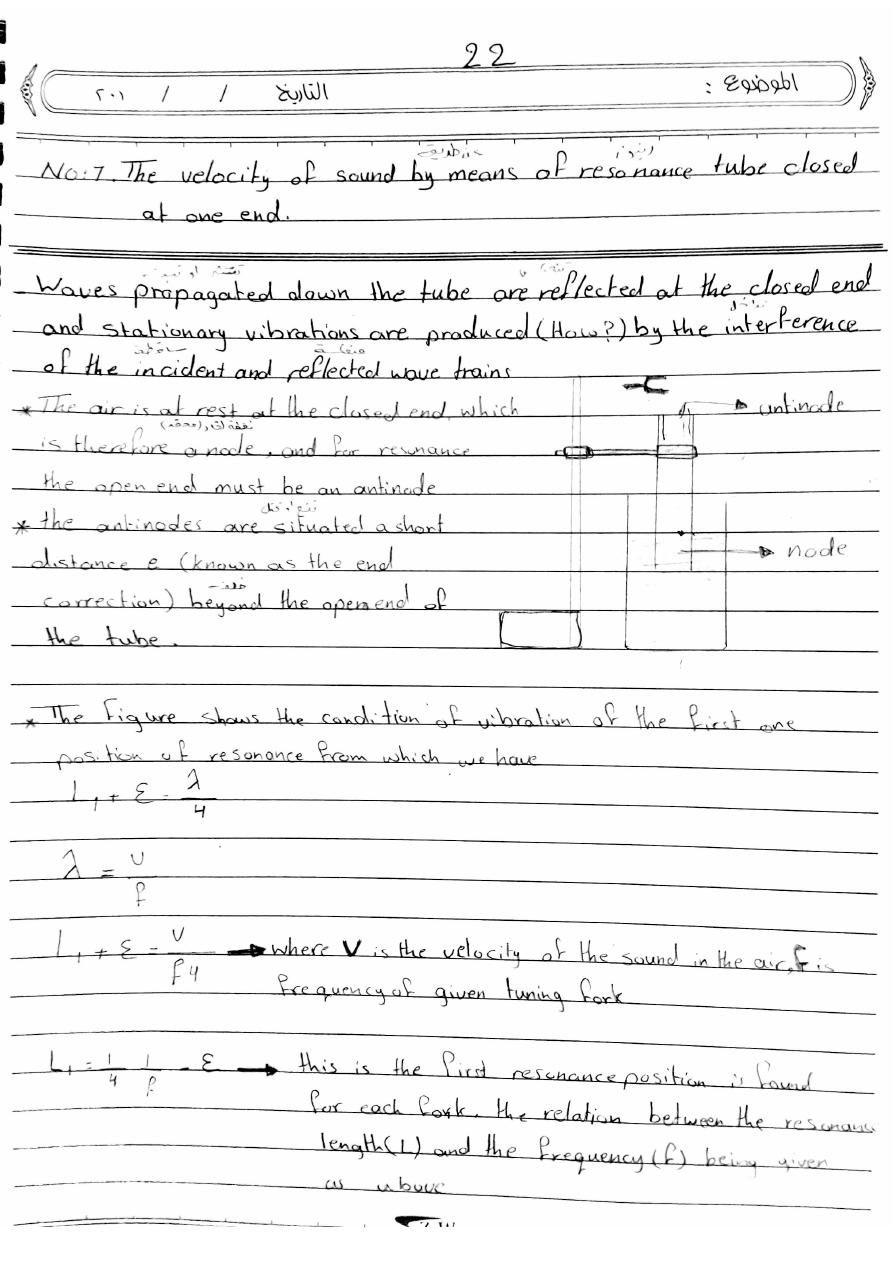 22
الموضوع :
التاريخ / / ٢٠١
عن طريق
No: 7. The velocity of sound by means of resonance tube closed
at one end.
Waves propagated down the tube are reflected at the closed end
and stationary vibrations are produced (How?) by the interference
of the incident and reflected wave trains
* The air is at rest at the closed end, which
is therefore a node, and for resonance
the open end must be an antinode
* the antinodes are situated a short
distance e (known as the end
correction) beyond the open end of
the tube.
antinode
node
* The Figure shows the condition of vibration of the first one
position of resonance from which we have
L₁ + ε = λ/4
λ = v/f
L₁ + ε = v/f4 → where V is the velocity of the sound in the air, f is
frequency of given tuning fork
L₁ = 1/4 1/f - ε → this is the first resonance position is found
for each fork. the relation between the resonance
length (L) and the frequency (f) being given
as above